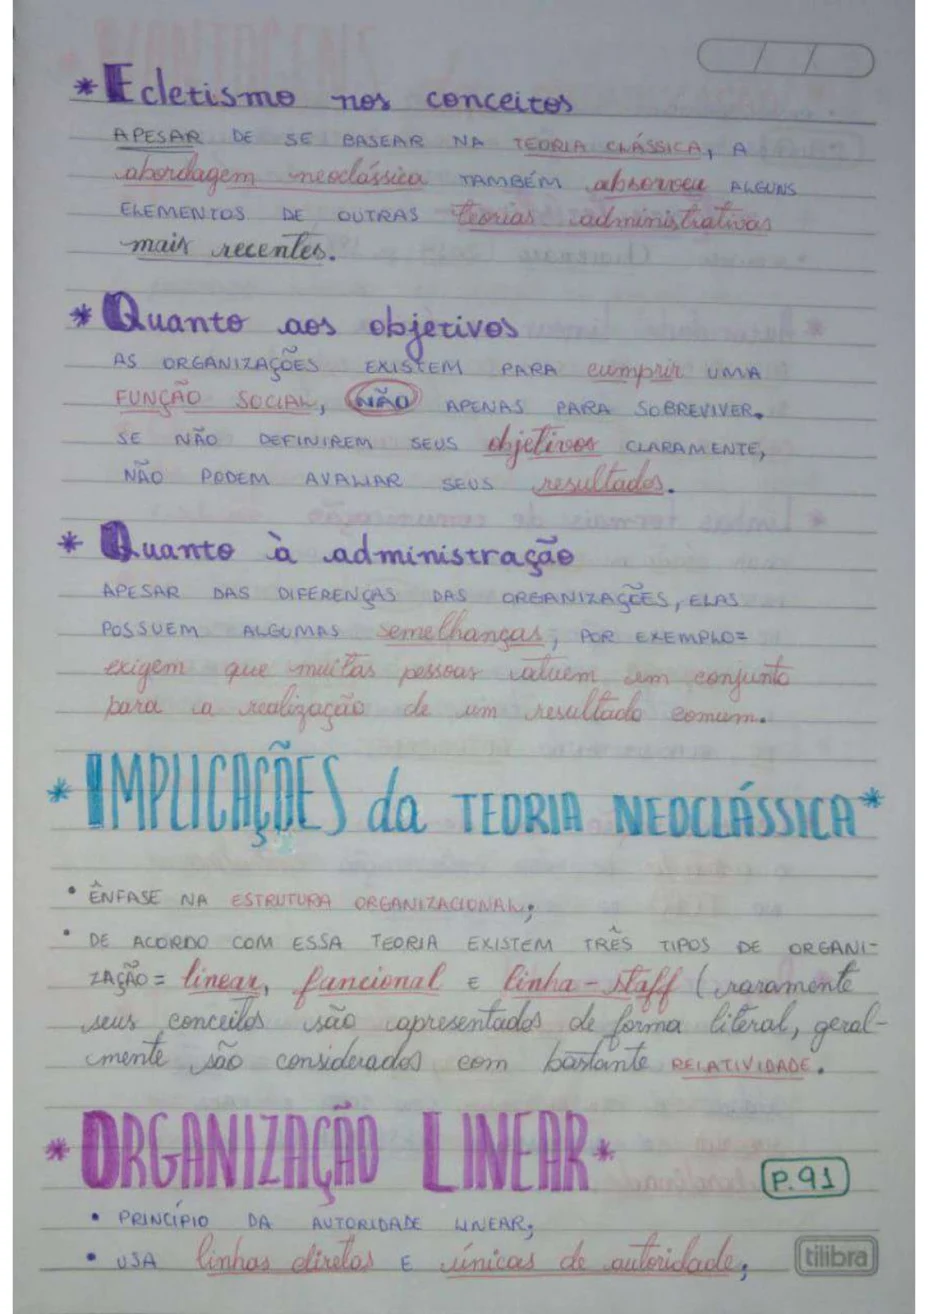 * Ecletismo nos conceitos
APESAR DE SE BASEAR NA TEORIA CLÁSSICA, A
abordagem neoclássica TAMBÉM absorveu ALGUNS
ELEMENTOS DE OUTRAS teorias administrativas
mais recentes.
* Quanto aos objetivos
AS ORGANIZAÇÕES EXISTEM PARA cumprir UMA
FUNÇÃO SOCIAL, NÃO APENAS PARA SOBREVIVER.
SE NÃO DEFINIREM SEUS objetivos CLARAMENTE,
NÃO PODEM AVALIAR SEUS resultados.
* Quanto à administração
APESAR DAS DIFERENÇAS DAS ORGANIZAÇÕES, ELAS
POSSUEM ALGUMAS semelhanças, POR EXEMPLO=
exigem que muitas pessoas atuem em conjunto
para a realização de um resultado comum.
* IMPLICAÇÕES da TEORIA NEOCLÁSSICA *
• ÊNFASE NA ESTRUTURA ORGANIZACIONAL;
• DE ACORDO COM ESSA TEORIA EXISTEM TRÊS TIPOS DE ORGANI-
ZAÇÃO = linear, funcional E linha-staff (raramente
seus conceitos são apresentados de forma literal, geral-
mente são considerados com bastante RELATIVIDADE.
* ORGANIZAÇÃO LINEAR *
P.91
• PRINCÍPIO DA AUTORIDADE LINEAR;
• USA linhas diretas E únicas de autoridade;
tilibra